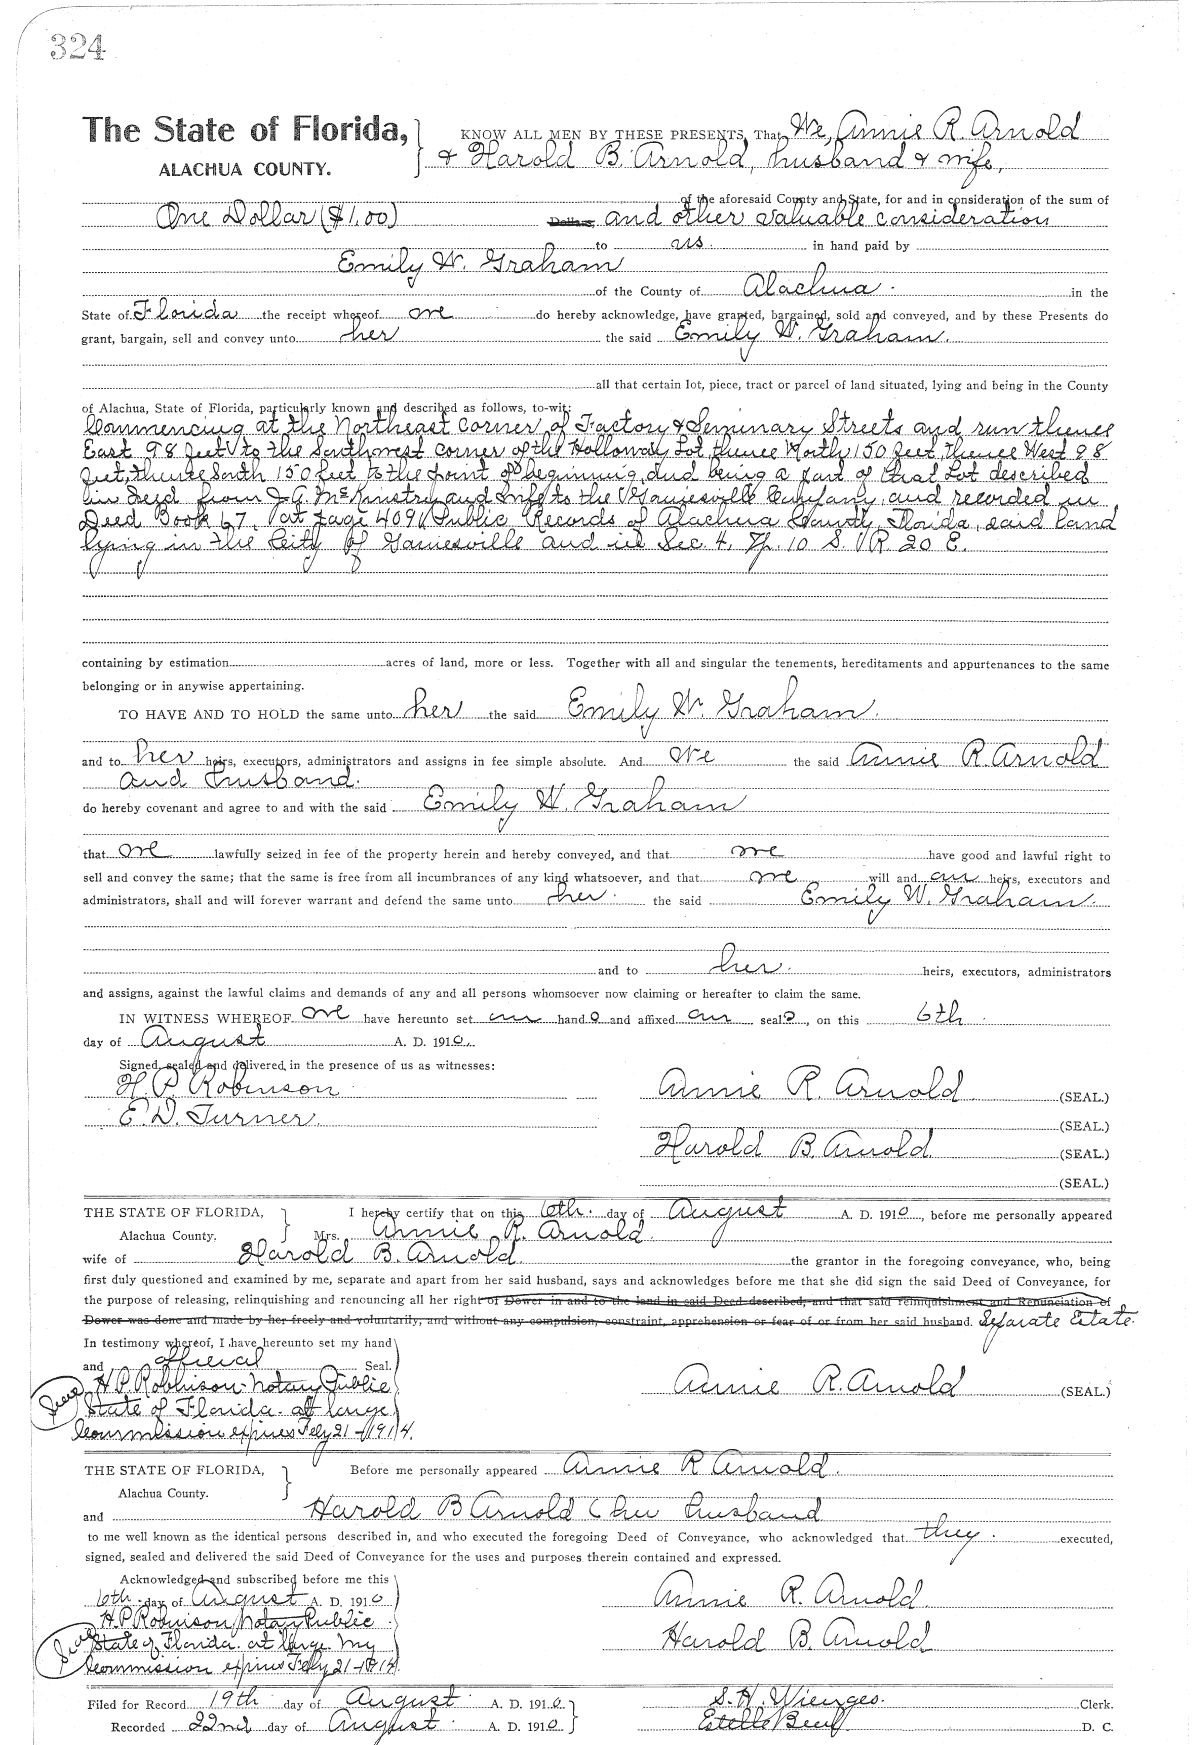 324
The State of Florida, KNOW ALL MEN BY THESE PRESENTS, That We, Annie R. Arnold
ALACHUA COUNTY. & Harold B. Arnold, husband & wife,
of the aforesaid County and State, for and in consideration of the sum of
One Dollar ($1.00) Dollars, and other valuable consideration
to us in hand paid by
Emily W. Graham
of the County of Alachua in the
State of Florida the receipt whereof we do hereby acknowledge, have granted, bargained, sold and conveyed, and by these Presents do
grant, bargain, sell and convey unto her the said Emily W. Graham.
all that certain lot, piece, tract or parcel of land situated, lying and being in the County
of Alachua, State of Florida, particularly known and described as follows, to-wit:
Commencing at the Northeast corner of Factory & Seminary Streets and run thence
East 98 feet to the Southwest corner of the Holloway Lot thence North 150 feet, thence West 98
feet, thence South 150 feet to the point of beginning, and being a part of that Lot described
in Deed from J. A. McKinstry and wife to the Gainesville Company, and recorded in
Deed Book 67, at page 409 Public Records of Alachua County, Florida, said land
lying in the City of Gainesville and in Sec. 4, Tp. 10 S. R. 20 E.
containing by estimation acres of land, more or less. Together with all and singular the tenements, hereditaments and appurtenances to the same
belonging or in anywise appertaining.
TO HAVE AND TO HOLD the same unto her the said Emily W. Graham.
and to her heirs, executors, administrators and assigns in fee simple absolute. And we the said Annie R. Arnold
and husband.
do hereby covenant and agree to and with the said Emily W. Graham
that we lawfully seized in fee of the property herein and hereby conveyed, and that we have good and lawful right to
sell and convey the same; that the same is free from all incumbrances of any kind whatsoever, and that we will and our heirs, executors and
administrators, shall and will forever warrant and defend the same unto her the said Emily W. Graham.
and to her heirs, executors, administrators
and assigns, against the lawful claims and demands of any and all persons whomsoever now claiming or hereafter to claim the same.
IN WITNESS WHEREOF we have hereunto set our hands and affixed our seals, on this 6th
day of August A. D. 1910.
Signed, sealed and delivered in the presence of us as witnesses:
H. P. Robinson Annie R. Arnold (SEAL.)
E. D. Turner. (SEAL.)
Harold B. Arnold (SEAL.)
(SEAL.)
THE STATE OF FLORIDA, I hereby certify that on this 6th day of August A. D. 1910, before me personally appeared
Alachua County. Mrs. Annie R. Arnold.
wife of Harold B. Arnold. the grantor in the foregoing conveyance, who, being
first duly questioned and examined by me, separate and apart from her said husband, says and acknowledges before me that she did sign the said Deed of Conveyance, for
the purpose of releasing, relinquishing and renouncing all her right of Dower in and to the land in said Deed described, and that said relinquishment and Renunciation of
Dower was done and made by her freely and voluntarily, and without any compulsion, constraint, apprehension or fear of or from her said husband. Separate Estate.
In testimony whereof, I have hereunto set my hand
and official Seal.
H. P. Robinson Notary Public Annie R. Arnold (SEAL.)
State of Florida at large
Commission expires Feby 21-1914.
THE STATE OF FLORIDA, Before me personally appeared Annie R Arnold.
Alachua County.
and Harold B Arnold her husband
to me well known as the identical persons described in, and who executed the foregoing Deed of Conveyance, who acknowledged that they executed,
signed, sealed and delivered the said Deed of Conveyance for the uses and purposes therein contained and expressed.
Acknowledged and subscribed before me this
6th day of August A. D. 1910 Annie R. Arnold.
H. P. Robinson Notary Public
State of Florida at large My Harold B. Arnold
Commission expires Feby 21-1914.
Filed for Record 19th day of August A. D. 1910 S. H. Wienges. Clerk.
Recorded 22nd day of August A. D. 1910 Estelle D. C.